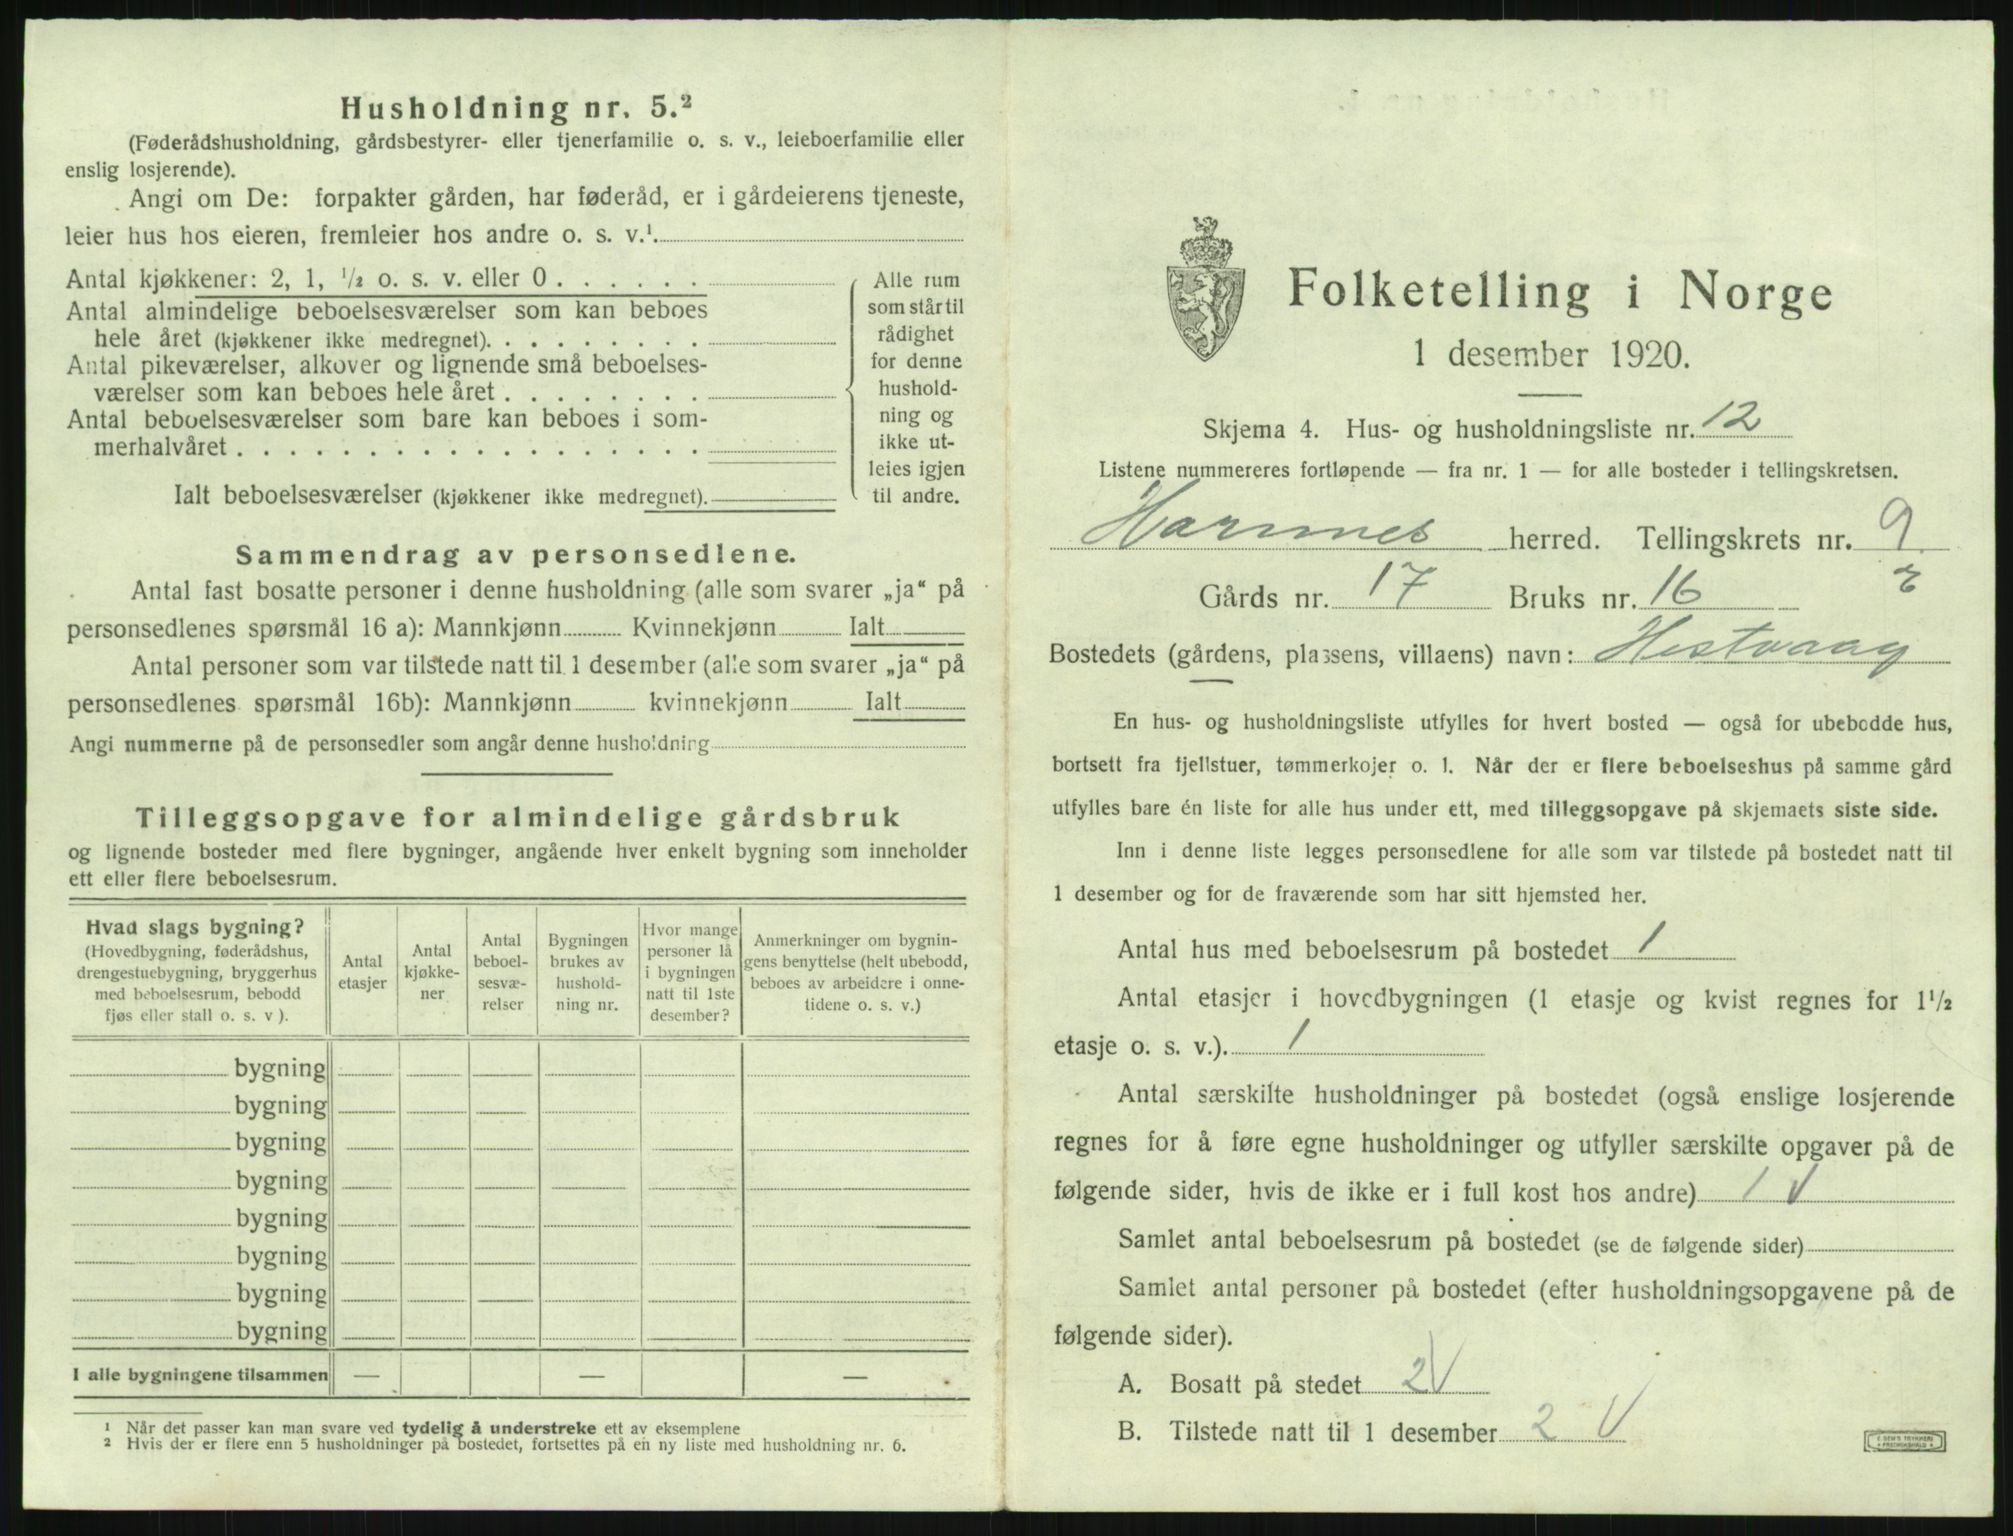 Husholdning nr. 5.²
(Føderådshusholdning, gårdsbestyrer- eller tjenerfamilie o. s. v., leieboerfamilie eller
enslig losjerende).
Angi om De: forpakter gården, har føderåd, er i gårdeierens tjeneste,
leier hus hos eieren, fremleier hos andre o. s. v.¹.
Antal kjøkkener: 2, 1, ¹/₂ o. s. v. eller 0 . . . . . .
Antal almindelige beboelsesværelser som kan beboes
hele året (kjøkkener ikke medregnet). . . . . . . . .
Antal pikeværelser, alkover og lignende små beboelses-
værelser som kan beboes hele året . . . . . . . .
Antal beboelsesværelser som bare kan beboes i som-
merhalvåret . . . . . . . . . . . . . . . . . .
Ialt beboelsesværelser (kjøkkener ikke medregnet).
Alle rum
som står til
rådighet
for denne
hushold-
ning og
ikke ut-
leies igjen
til andre.
Sammendrag av personsedlene.
Antal fast bosatte personer i denne husholdning (alle som svarer „ja“ på
personsedlenes spørsmål 16 a): Mannkjønn Kvinnekjønn Ialt
Antal personer som var tilstede natt til 1 desember (alle som svarer „ja“ på
personsedlenes spørsmål 16b): Mannkjønn kvinnekjønn Ialt
Angi nummerne på de personsedler som angår denne husholdning
Tilleggsopgave for almindelige gårdsbruk
og lignende bosteder med flere bygninger, angående hver enkelt bygning som inneholder
ett eller flere beboelsesrum.
Hvad slags bygning?
(Hovedbygning, føderådshus,
drengestuebygning, bryggerhus
med beboelsesrum, bebodd
fjøs eller stall o. s. v ).
Antal
etasjer
Antal
kjøkke-
ner
Antal
beboel-
sesvæ-
relser
Bygningen
brukes av
hushold-
ning nr.
Hvor mange
personer lå
i bygningen
natt til 1ste
desember?
Anmerkninger om bygnin-
gens benyttelse (helt ubebodd,
beboes av arbeidere i onne-
tidene o. s. v.)
bygning
bygning
bygning
bygning
bygning
bygning
bygning
bygning
I alle bygningene tilsammen — — —
¹ Når det passer kan man svare ved tydelig å understreke ett av eksemplene
² Hvis der er flere enn 5 husholdninger på bostedet, fortsettes på en ny liste med husholdning nr. 6.
Folketelling i Norge
1 desember 1920.
Skjema 4. Hus- og husholdningsliste nr. 12
Listene nummereres fortløpende — fra nr. 1 — for alle bosteder i tellingskretsen.
Haramnes herred. Tellingskrets nr. 9
Gårds nr. 17 Bruks nr. 16
Bostedets (gårdens, plassens, villaens) navn: Hestvaag
En hus- og husholdningsliste utfylles for hvert bosted — også for ubebodde hus,
bortsett fra fjellstuer, tømmerkojer o. l. Når der er flere beboelseshus på samme gård
utfylles bare én liste for alle hus under ett, med tilleggsopgave på skjemaets siste side.
Inn i denne liste legges personsedlene for alle som var tilstede på bostedet natt til
1 desember og for de fraværende som har sitt hjemsted her.
Antal hus med beboelsesrum på bostedet 1
Antal etasjer i hovedbygningen (1 etasje og kvist regnes for 1¹/₂
etasje o. s. v.). 1
Antal særskilte husholdninger på bostedet (også enslige losjerende
regnes for å føre egne husholdninger og utfyller særskilte opgaver på de
følgende sider, hvis de ikke er i full kost hos andre) 1 V
Samlet antal beboelsesrum på bostedet (se de følgende sider)
Samlet antal personer på bostedet (efter husholdningsopgavene på de
følgende sider).
A. Bosatt på stedet 2 V
B. Tilstede natt til 1 desember 2 V